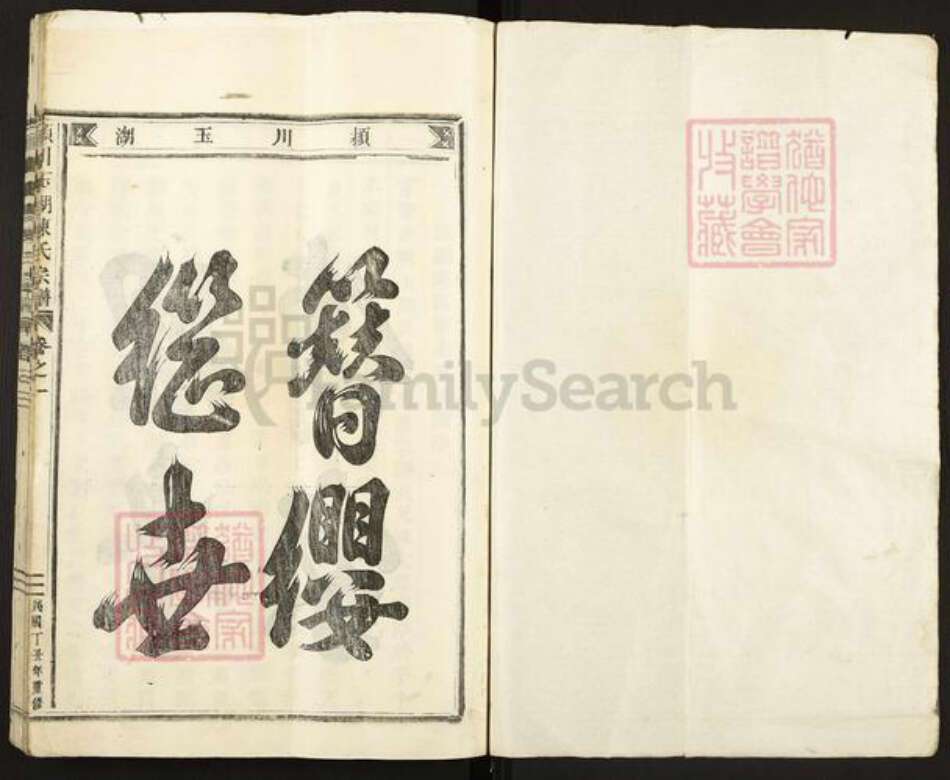 猶他家
譜學會
收藏
潁川玉湖
簪纓
繼世
猶他家
譜學會
收藏
潁川玉湖陳氏宗譜 卷之一
民國丁丑年重修
FamilySearch